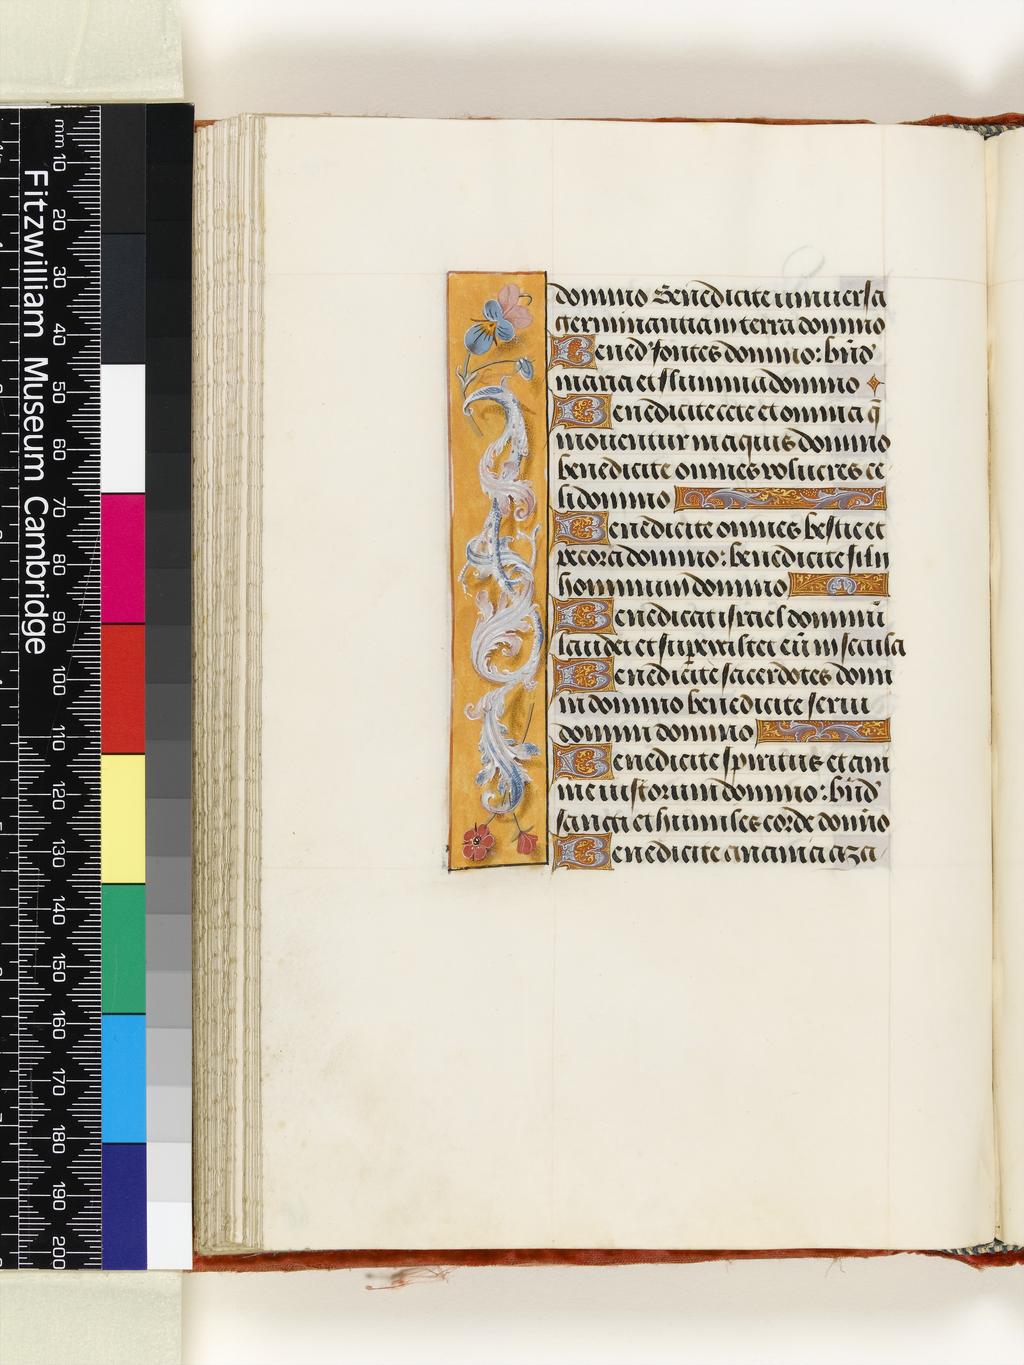 domino Benedicite universa
germinantia in terra domino
Bened' fontes domino: bn̄d'
maria et flumina domino
Benedicite cete et omnia q̄
moventur in aquis domino
benedicite omnes volucres ce
li domino
Benedicite omnes bestie et
pecora domino: benedicite filii
hominum domino
Benedicat israel dominū
laudet et superexaltet eū in secula
Benedicite sacerdotes domi
ni domino benedicite servi
domini domino
Benedicite spiritus et ani
me iustorum domino: bn̄d'
sancti et humiles corde domīo
Benedicite anania aza
Fitzwilliam Museum Cambridge
mm 10 20 30 40 50 60 70 80 90 100 110 120 130 140 150 160 170 180 190 200